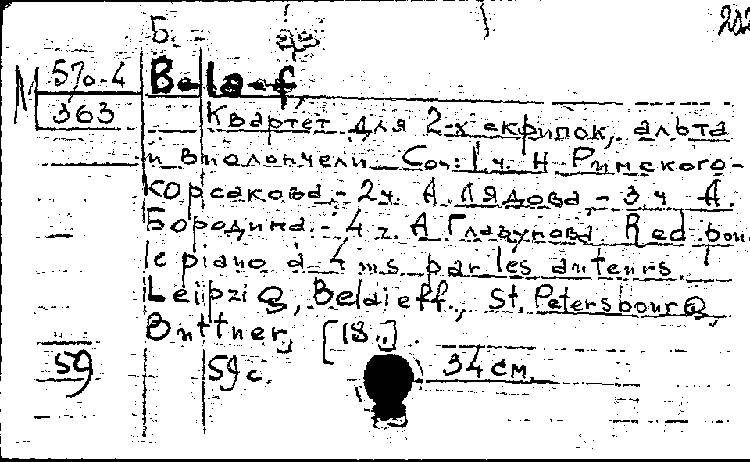 Б. -
М 570-4
363
B-la-f,
Квартет для 2-х скрипок, альта
и виолончели. Соч: 1 ч. Н. Римского-
Корсакова, - 2 ч. А. Лядова, - 3 ч. А.
Бородина. - 4 ч. А. Глазунова. Red. pour
le piano à 4 ms. par les auteurs.
Leipzig, Belaieff., St. Petersbourg,
Büttner, [18..].
59 59 с. 34 см.